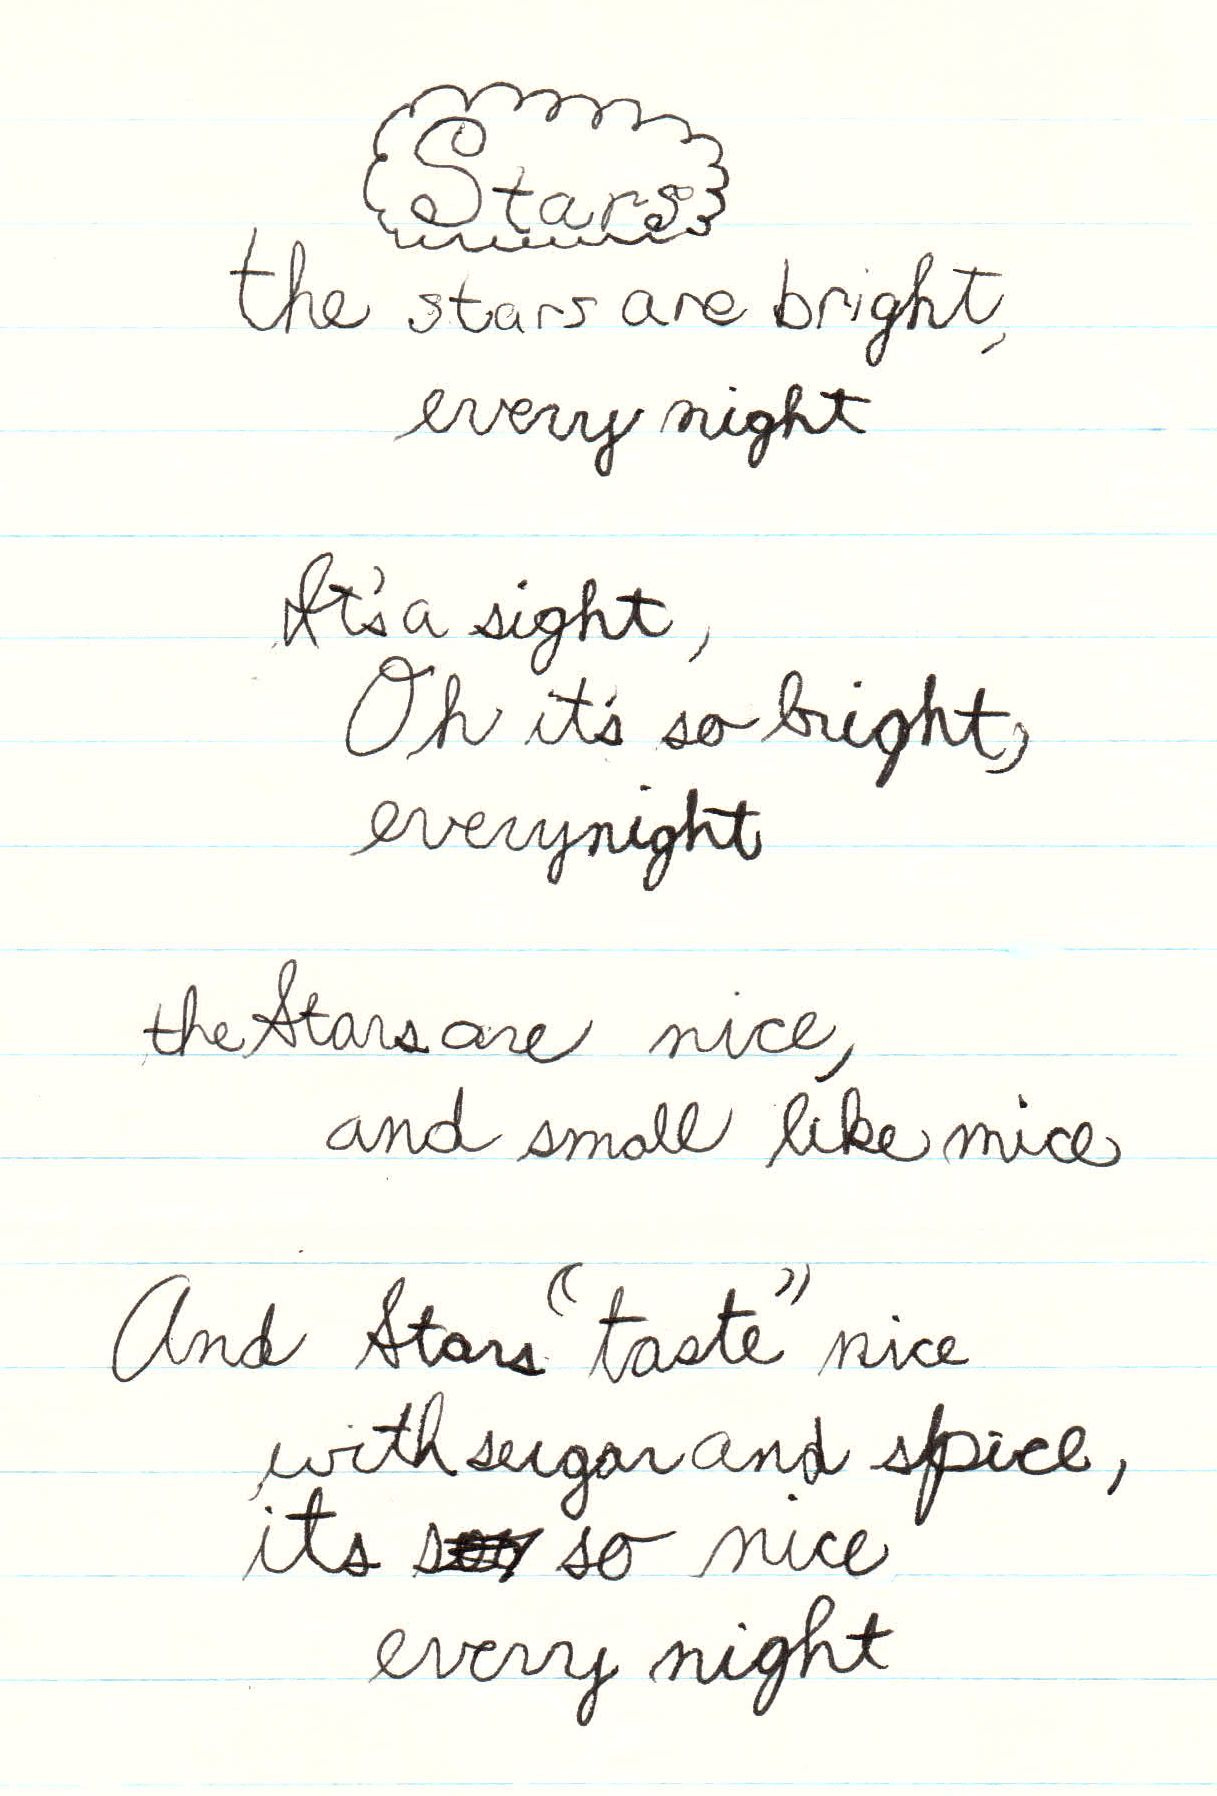 Stars
the stars are bright,
every night
It's a sight,
Oh it's so bright,
everynight
the Stars are nice,
and small like mice
And Stars "taste" nice
with sugar and spice,
its so nice
every night